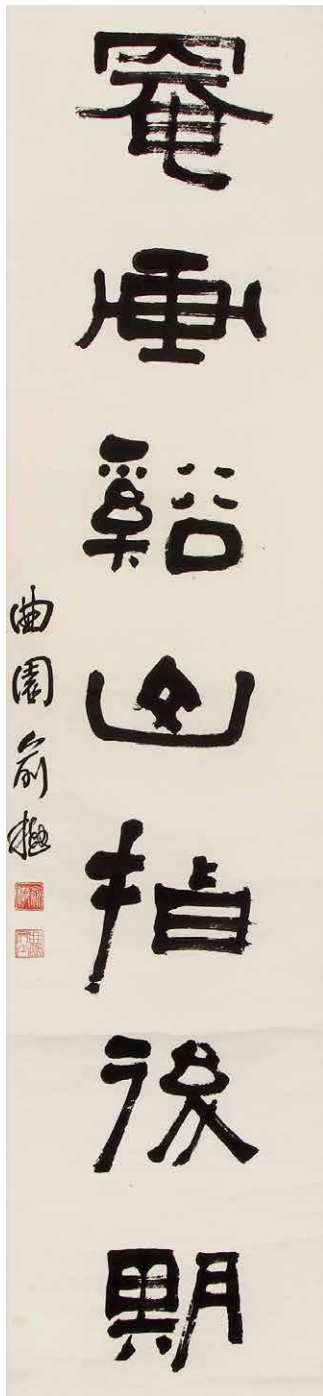 罨画谿山指後期
曲園俞樾